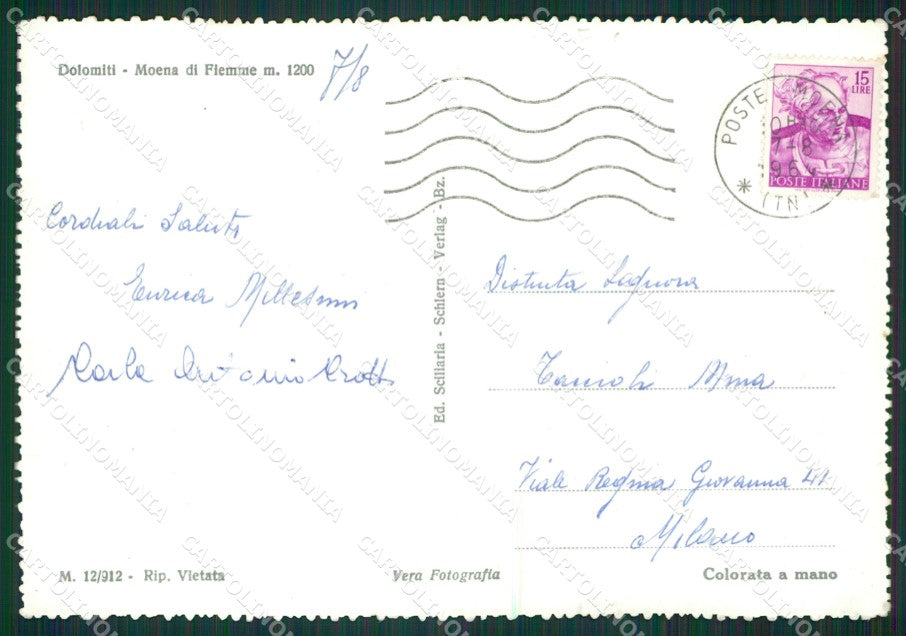 Dolomiti - Moena di Fiemme m. 1200
7/8
15
LIRE
POSTE ITALIANE
POSTE MOENA
7-8
196
(TN)
Cordiali Saluti
Enrica Millesimi
Carla Antonio
Ed. Scillaria - Schlern - Verlag - Bz.
Distinta Signora
Taccioli Mina
Viale Regina Giovanna 41
Milano
M. 12/912 - Rip. Vietata
Vera Fotografia
Colorata a mano
CARTOLINOMANIA